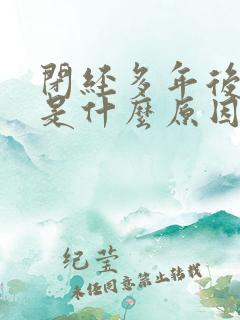 閉經多年後
是什麼原因
紀瑩
未任同意禁止转载